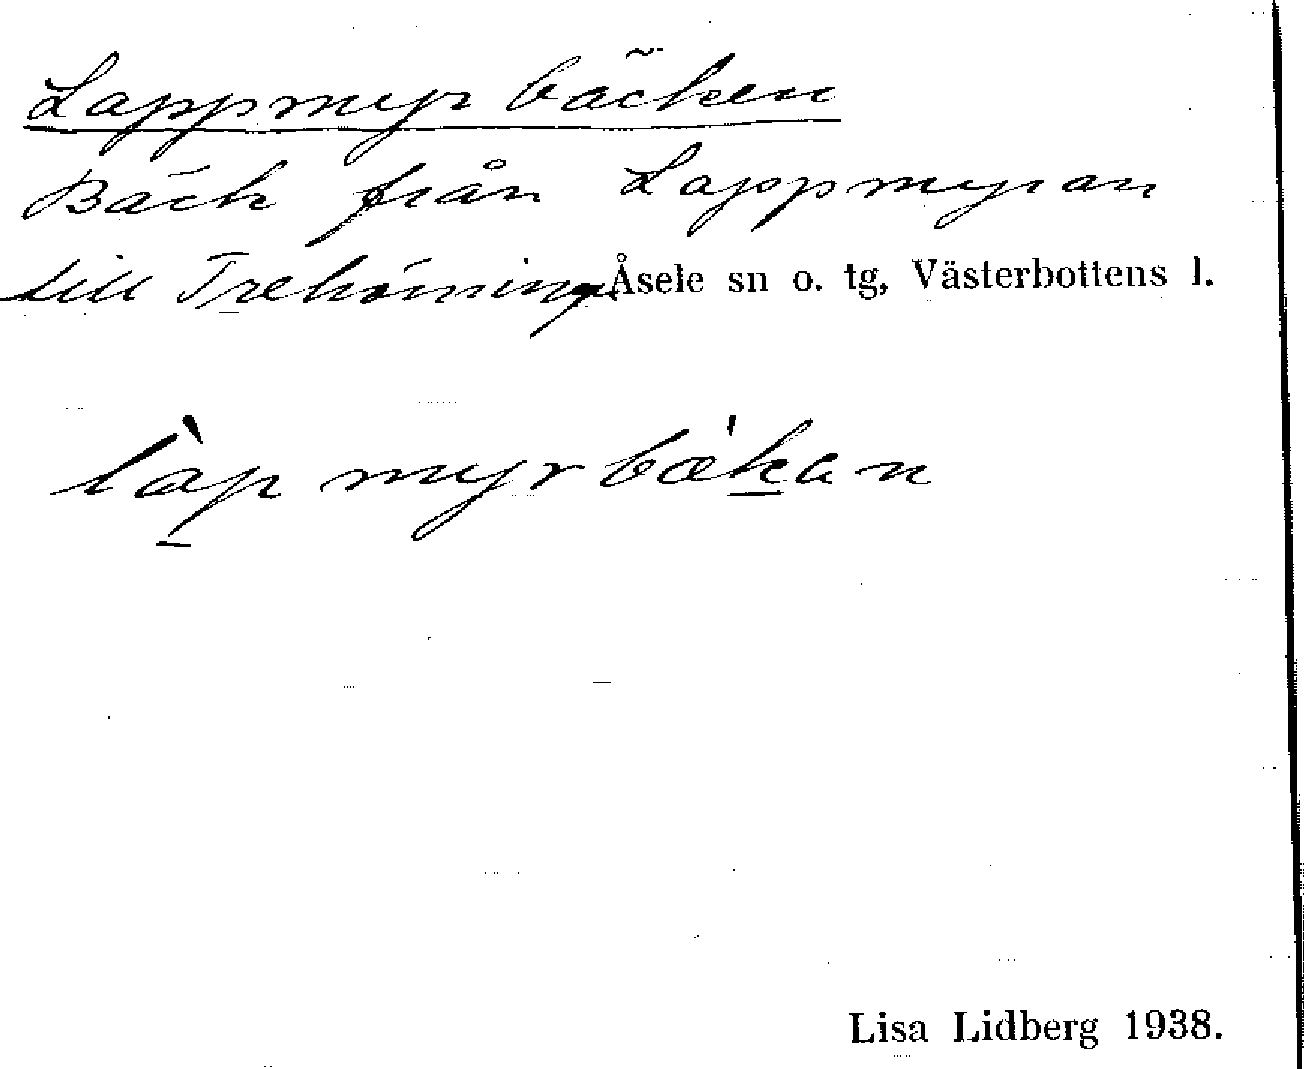 Lappmyrbäcken
Bäck från Lappmyran
till Trehörning Åsele sn o. tg, Västerbottens l.
làpmyrbæ̀kan
Lisa Lidberg 1938.